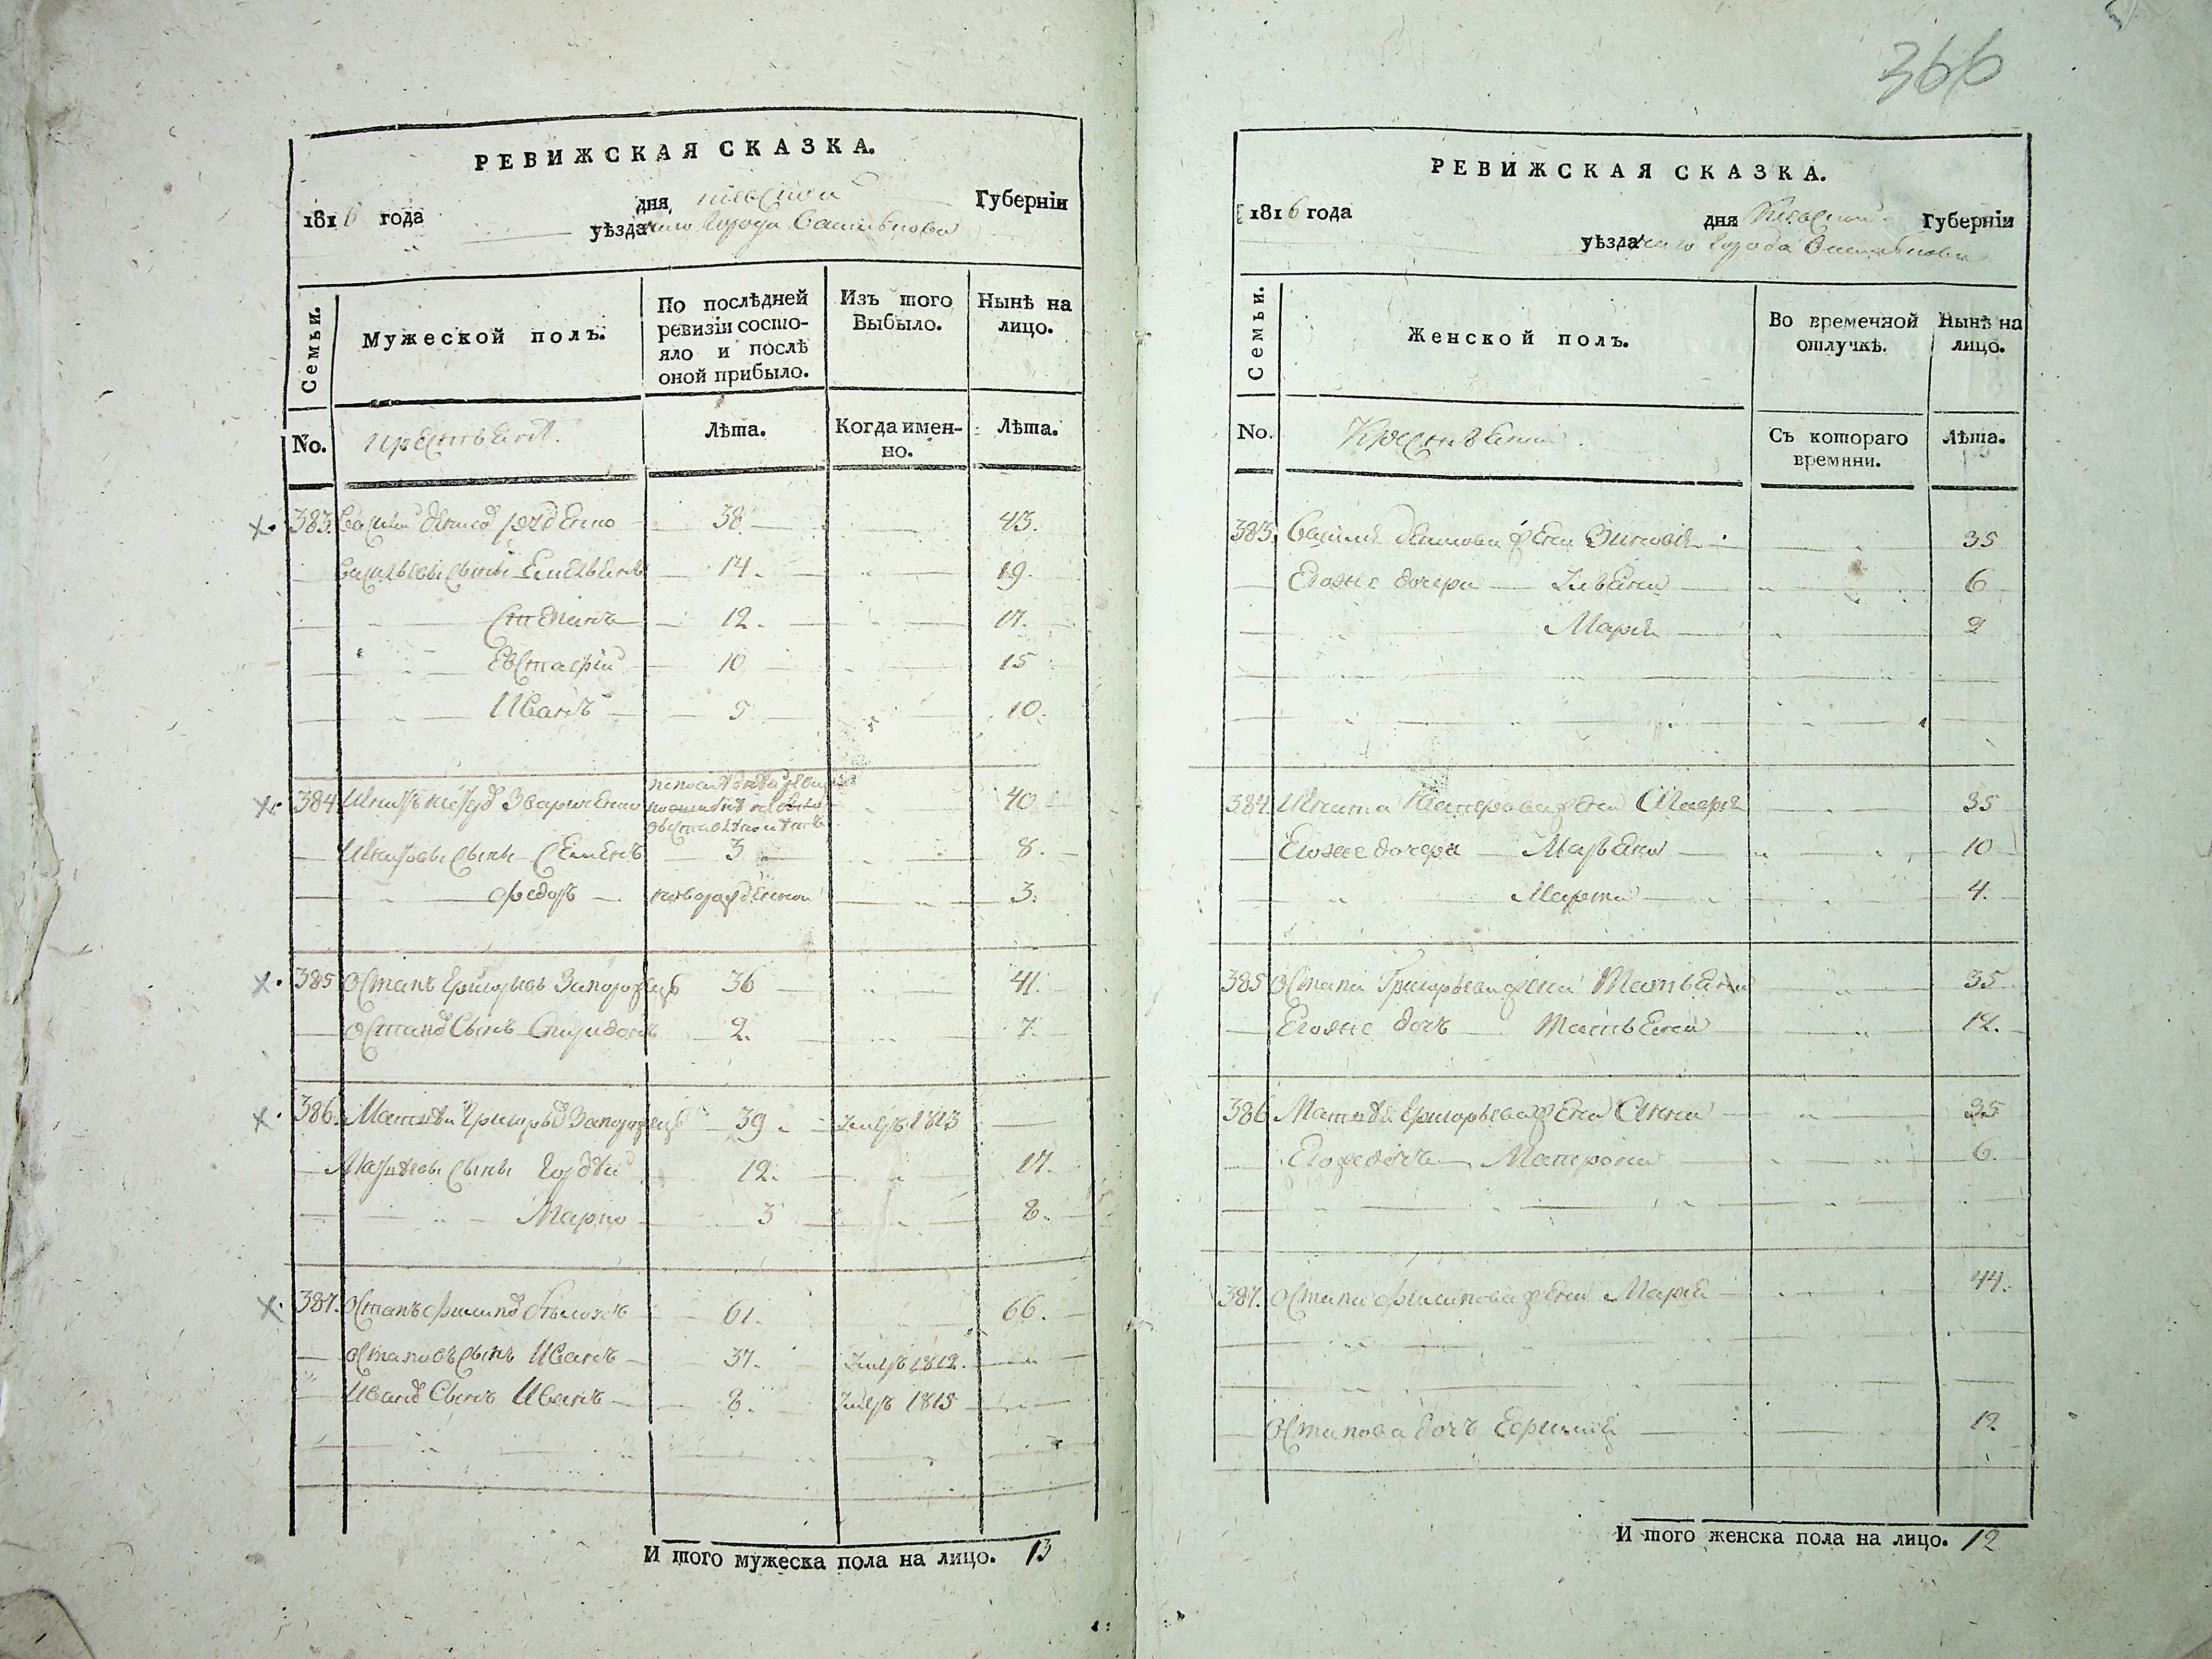 366
РЕВИЖСКАЯ СКАЗКА.
1816 года дня Киевской Губерніи
уѣзда города
Семьи.
Мужеской полъ.
По послѣдней ревизіи состояло и послѣ оной прибыло.
Изъ того Выбыло.
Нынѣ на лицо.
No.
Крестьяне.
Лѣта.
Когда именно.
Лѣта.
383. Василій Денисовъ 38 43.
Васильевы сыны Емельянъ 14. 19.
Степанъ 12. 17.
Евстафій 10 15
Иванъ 5 10.
384. 40
сыны Семенъ 3 8.
Федоръ новорожденной 3.
385 Остапъ Григорьевъ Запорожецъ 36 41.
Остаповъ Сынъ Спиридонъ 2. 7.
386. Матвѣй Григорьевъ Запорожецъ 39 Умеръ 1813
Матвѣевы сыны Гордѣй 12. 17.
Марко 3 8.
387. Остапъ Филиповъ 61. 66.
Остаповъ сынъ Иванъ 37. Умеръ 1812.
Ивановъ Сынъ Иванъ 8. Умеръ 1815
И того мужеска пола на лицо. 13
РЕВИЖСКАЯ СКАЗКА.
1816 года дня Киевской Губерніи
уѣзда города
Семьи.
Женской полъ.
Во временной отлучкѣ.
Нынѣ на лицо.
No.
Крестьяне.
Съ котораго времяни.
Лѣта.
383. Василія Денисова жена Зиновія 35
Егоже дочери Ульяна 6
Марія 2
384. жена 35
Егоже дочери Марьяна 10
Марта 4.
385 Остапа Григорьева жена Татьяна 35
Егоже дочь Татьяна 12.
386 Матвѣя Григорьева жена Анна 35
Егоже дочь Матрона 6.
387. Остапа Филипова жена Марія 44.
Остапова дочь 12
И того женска пола на лицо. 12